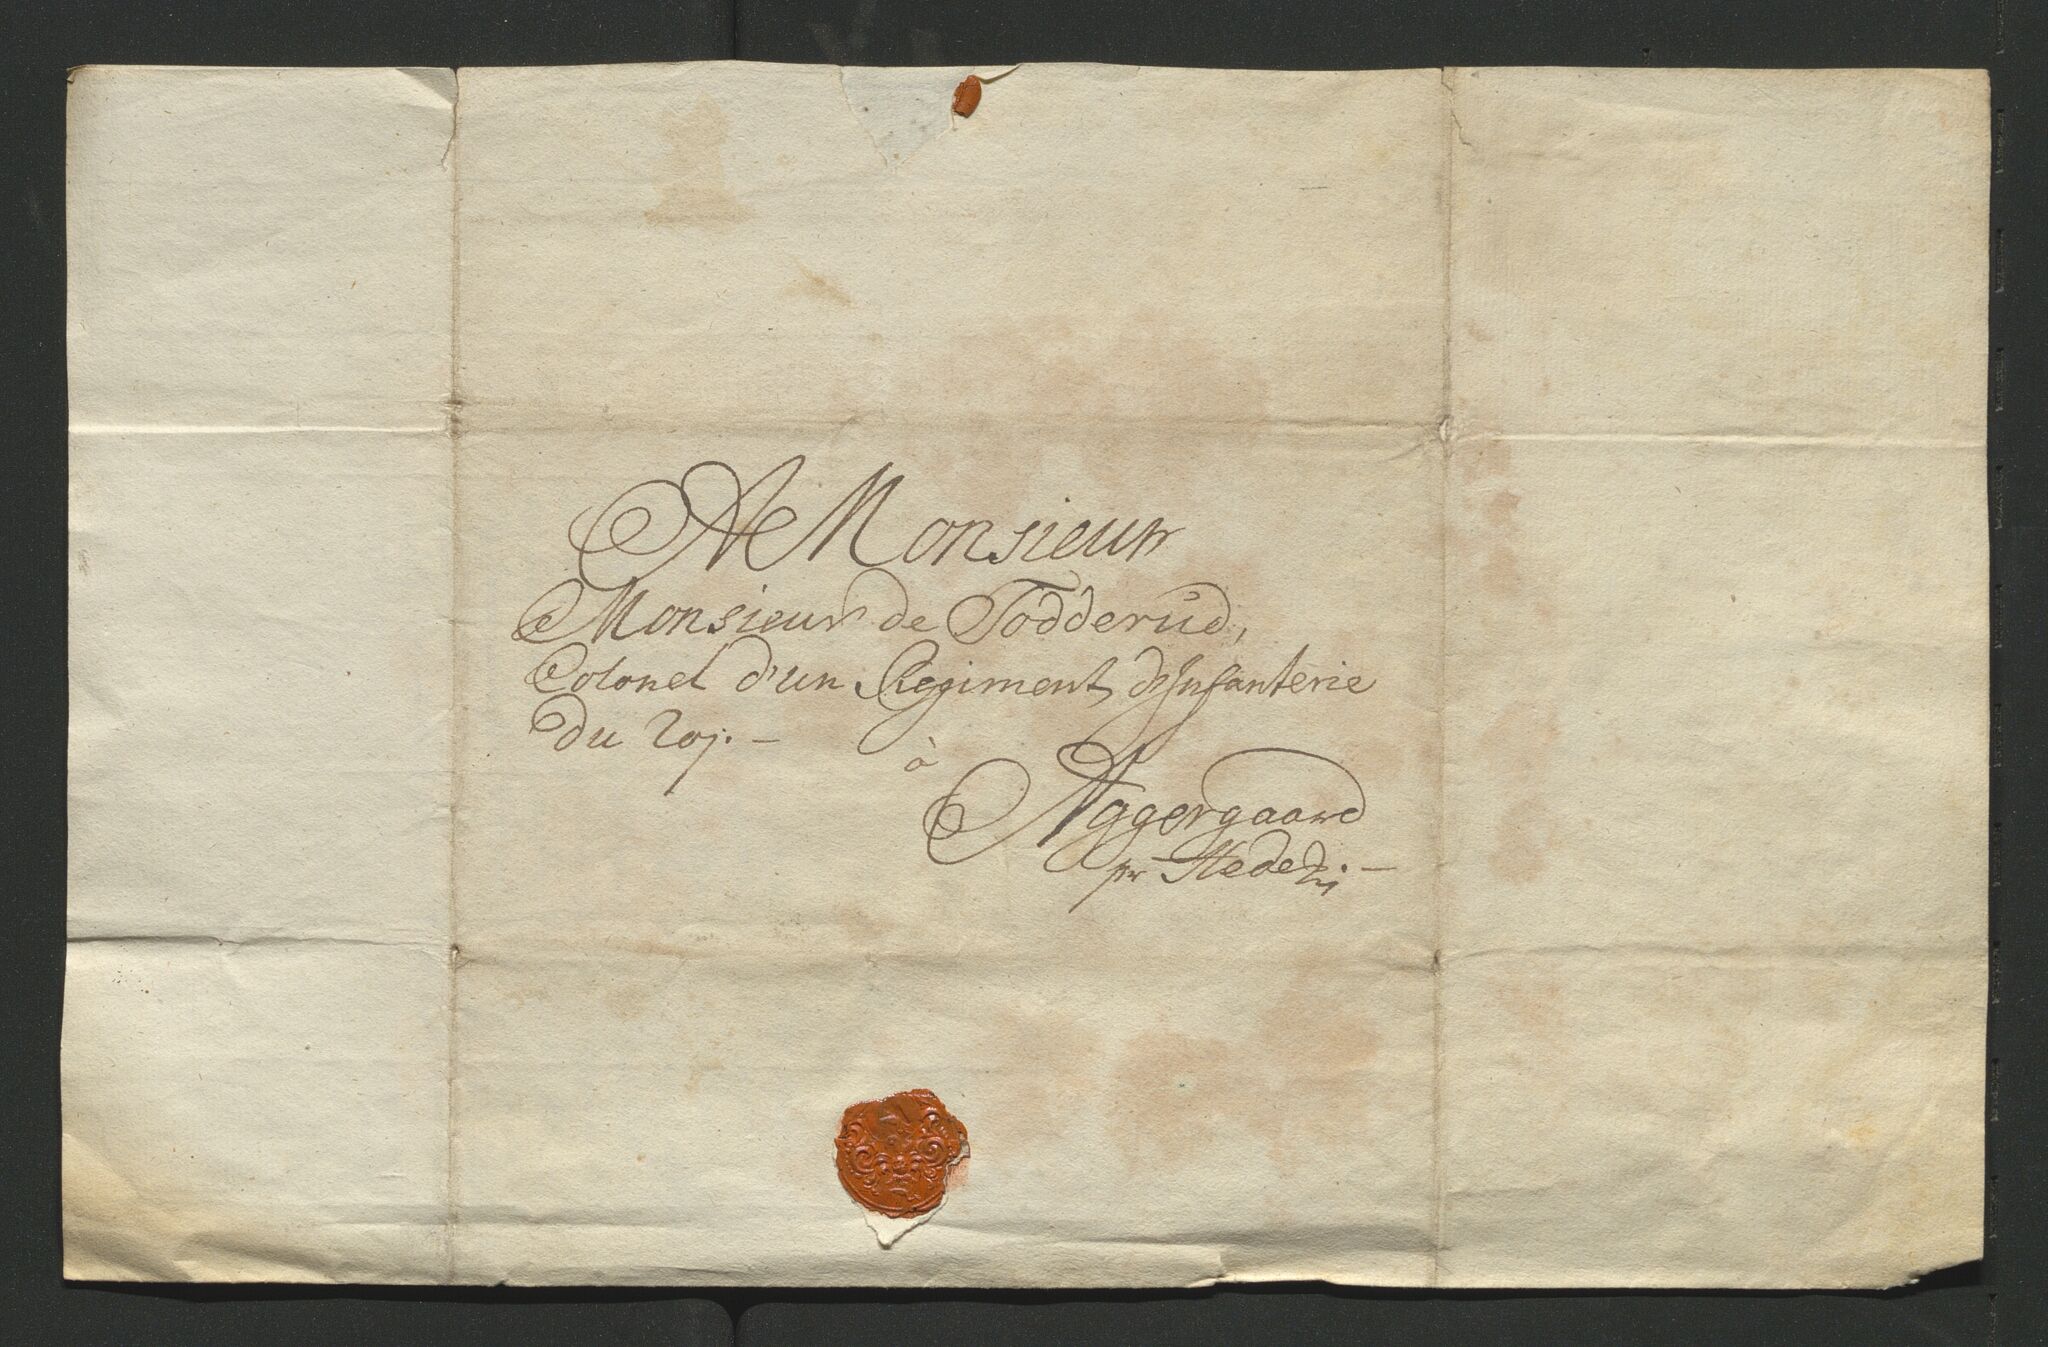 A Monsieur
Monsieur de Todderud,
Colonel d'un Regiment d'Infanterie
du Roj. —
à
Aggergaard
pr